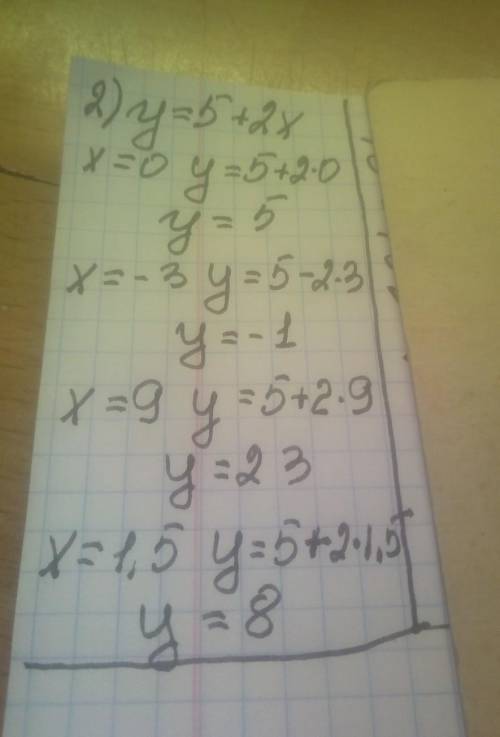 2) y=5+2x
x=0 y=5+2·0
y=5
x=-3 y=5-2·3
y=-1
x=9 y=5+2·9
y=23
x=1,5 y=5+2·1,5
y=8